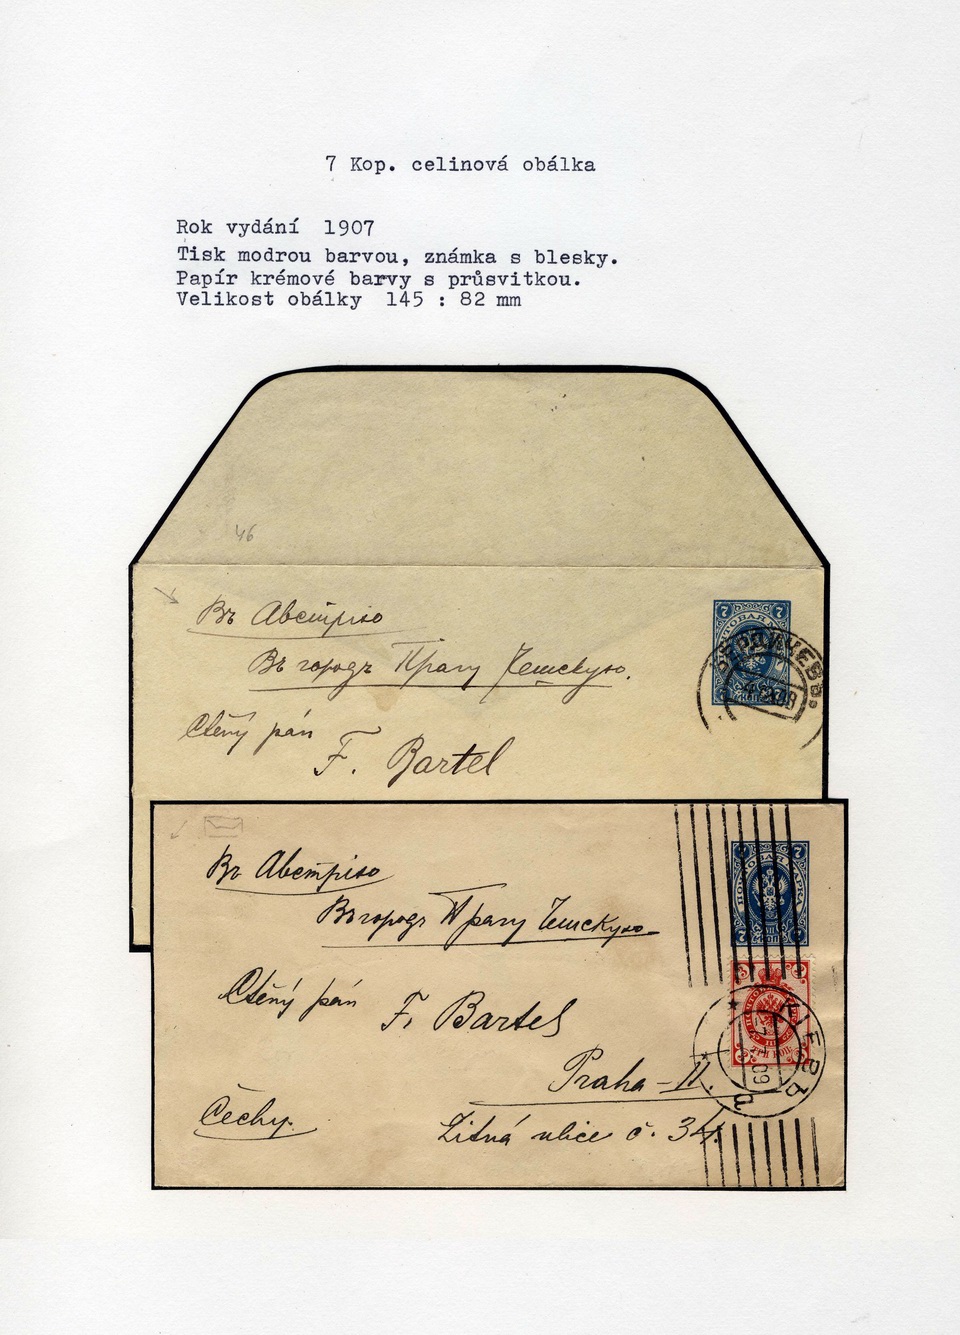 7 Kop. celinová obálka
Rok vydání 1907
Tisk modrou barvou, známka s blesky.
Papír krémové barvy s průsvitkou.
Velikost obálky 145 : 82 mm
46
Въ Австрiю
Въ городъ Прагу Чешскую.
Ctěný pán
F. Bartel
7 7
БЕРДИЧЕВЪ
Въ Австрiю
Въ городъ Прагу Чешскую
Ctěný pán
F. Bartel
Praha - II.
Čechy.
Žitná ulice č. 34.
7
ПОЧТОВАЯ МАРКА
7 КОП 7
3 3
ТРИ КОП.
КIЕВЪ
09